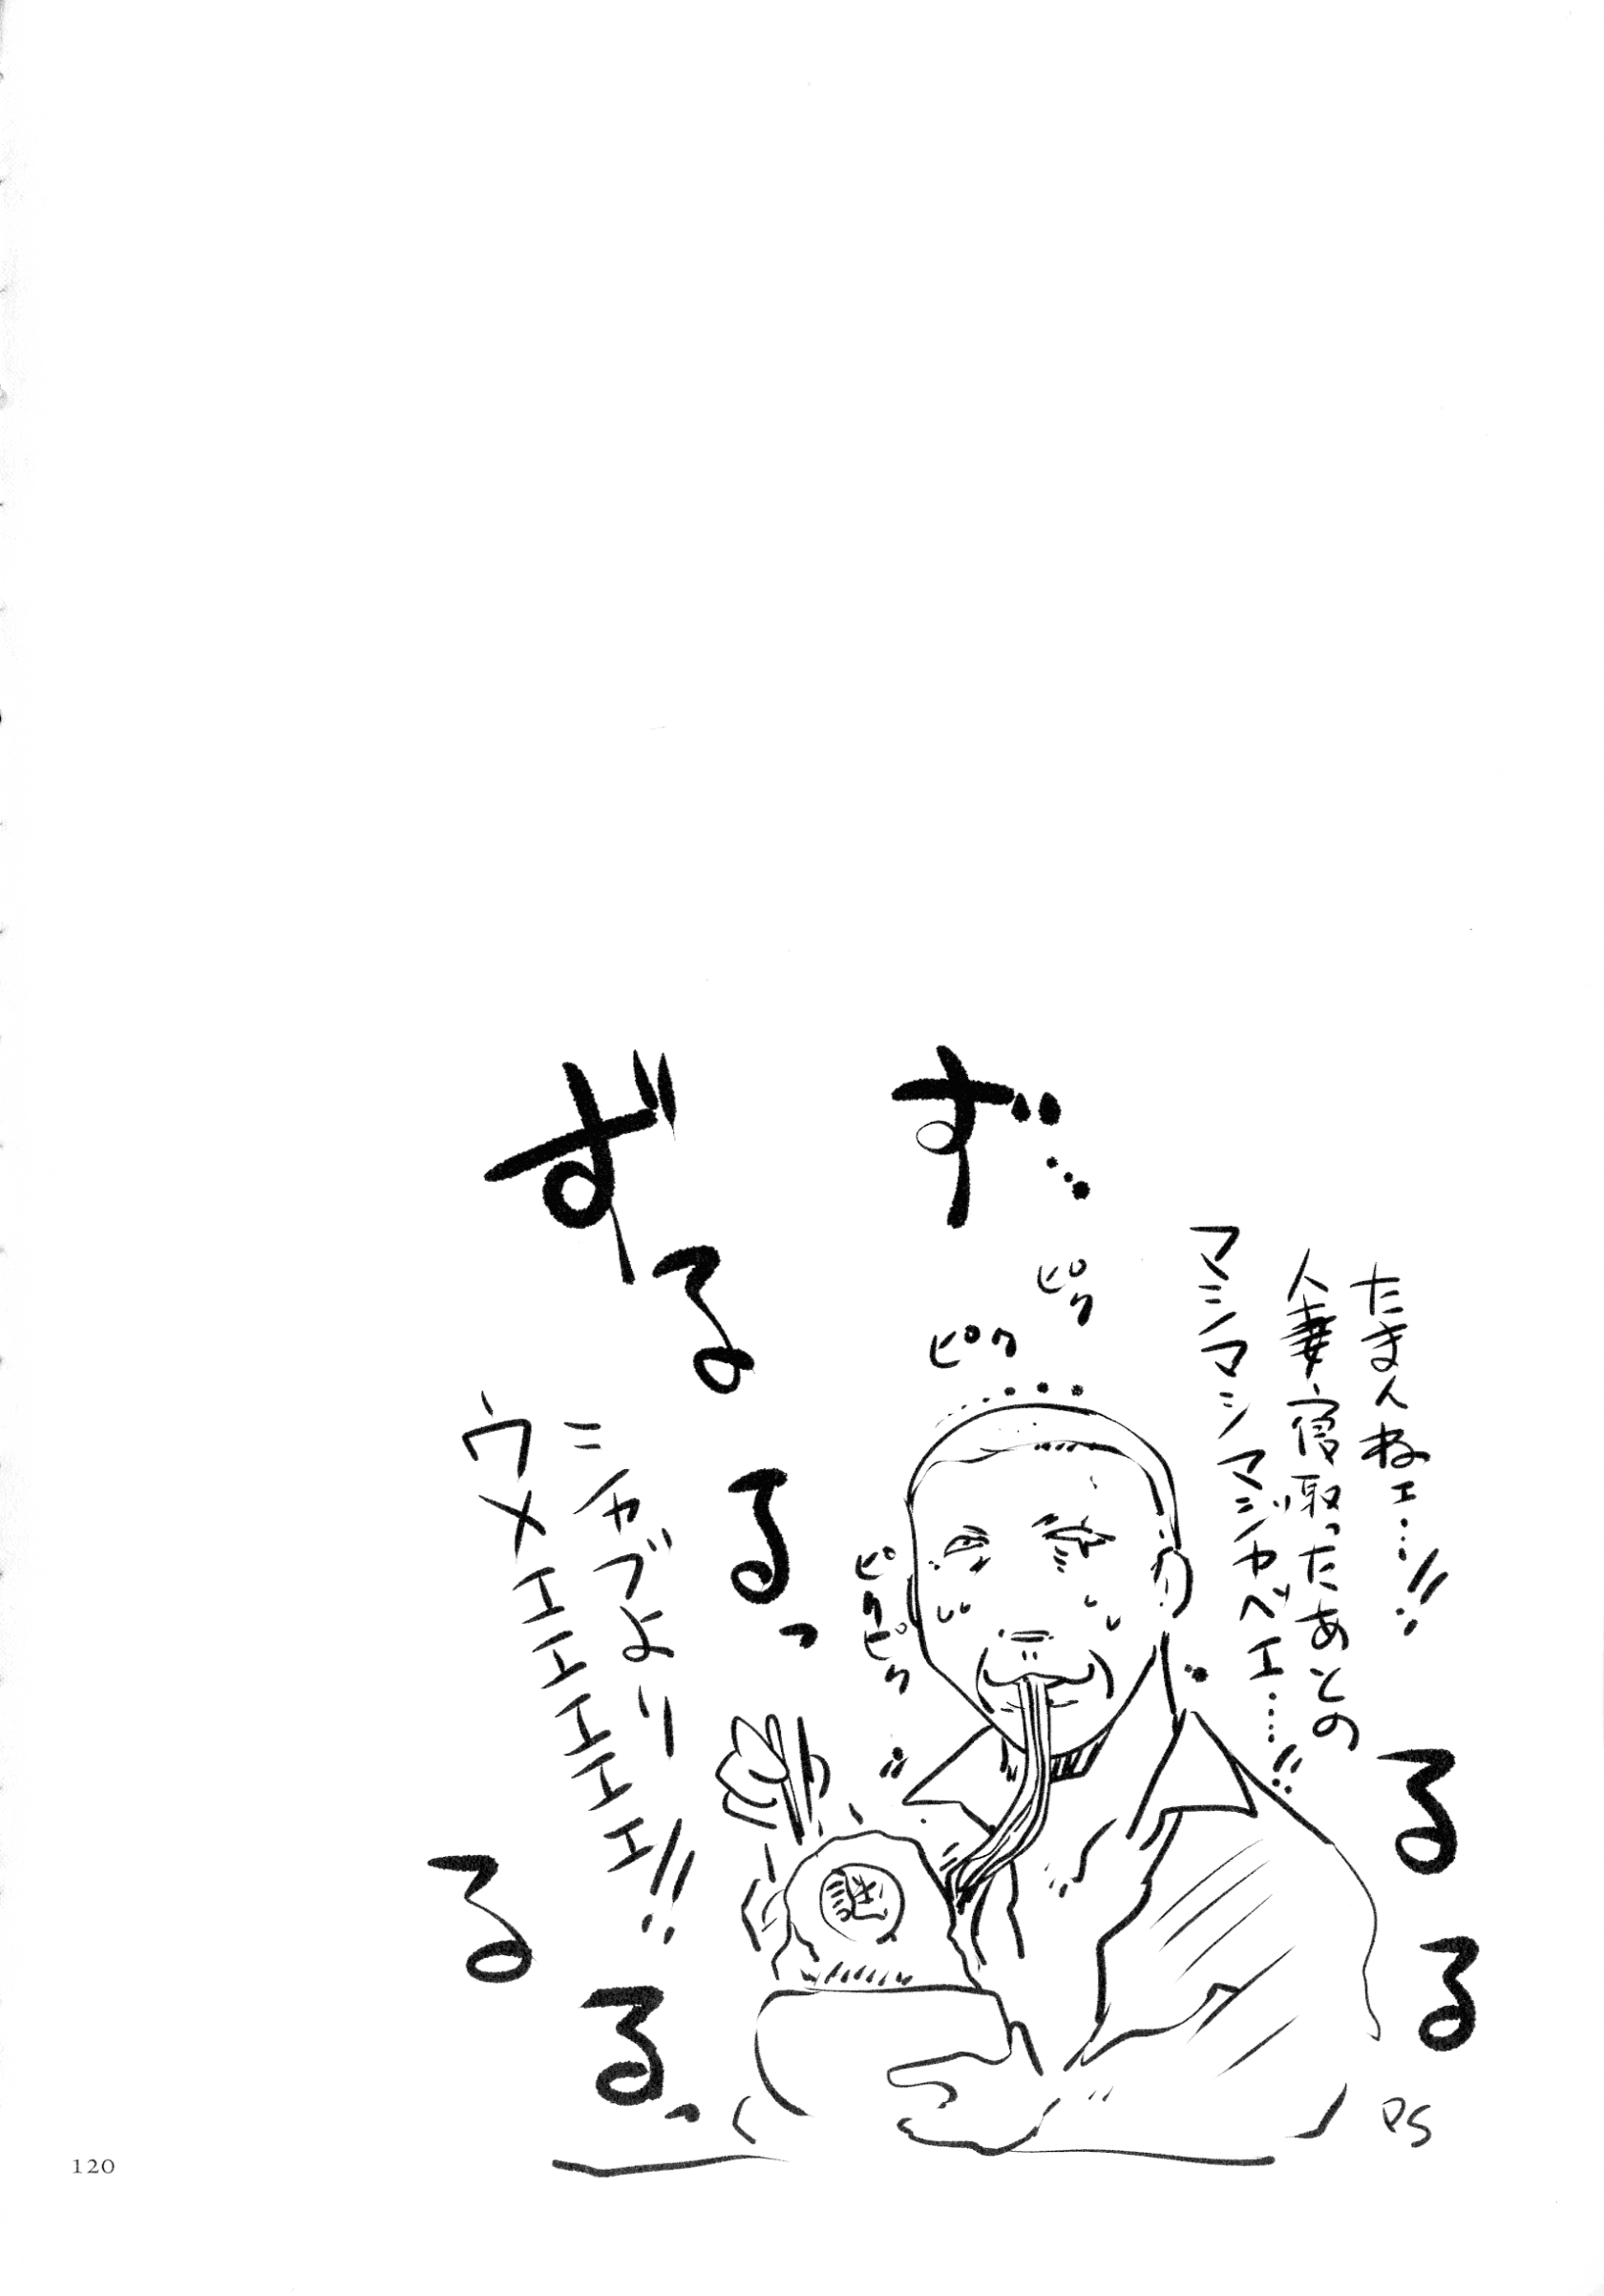 たまんねェ…!!
人妻寝取ったあとの
マシマシマジヤベェ……!!
ず…
ピク
ピク
ピクピク
ずるるっ
シャブより
ウメエエエエエエ!!
るる
るるっ
謎
PS
120